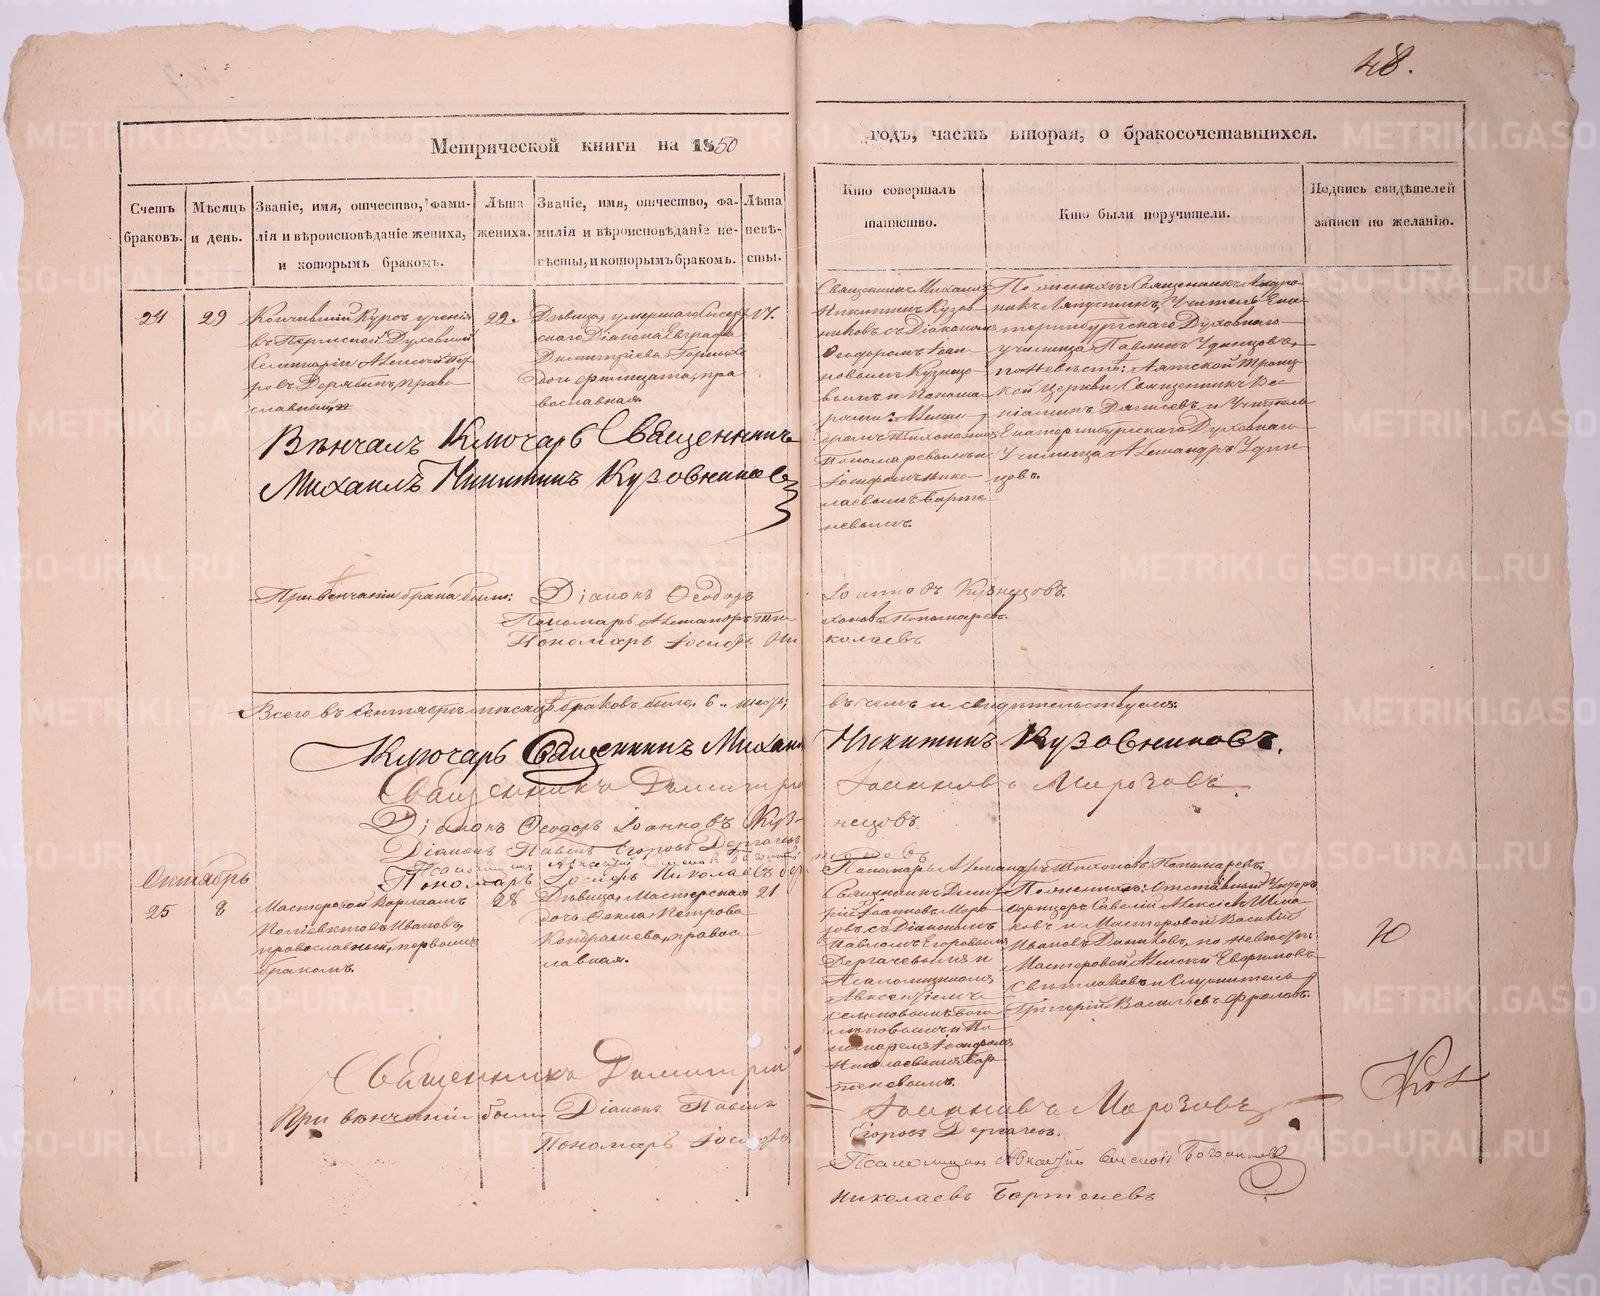 48.
Метрической книги на 1850
годъ, часть вторая, о бракосочетавшихся.
Счетъ браковъ.
Мѣсяцъ и день.
Званіе, имя, отчество, фами-
лія и вѣроисповѣданіе жениха,
и которымъ бракомъ.
Лѣта жениха.
Званіе, имя, отчество, фа-
милія и вѣроисповѣданіе не-
вѣсты, и которымъ бракомъ.
Лѣта невѣ-
сты.
Кто совершалъ
таинство.
Кто были поручители.
Подпись свидѣтелей
записи по желанію.
24
29
Кончившій Курсъ ученія
въ Пермской Духовной
Семинаріи Алексѣй Пет
ровъ Дерябинъ, право
славный
22.
Дѣвица, умершаго
Діакона Евграфа
Димитріева
дочь православная.
17.
Священникъ Михаилъ
Никитинъ Кузов
никовъ съ Діакономъ
Ѳеодоромъ Іоан
новымъ Кузнецо
вымъ и Понома
рями: Алексан
дромъ Тихоновымъ
Пономаревымъ и
Іосифомъ Нико
лаевымъ Барте
невымъ.
По женихѣ: Священникъ Андро
никъ Ляпустинъ, Учитель Ека
теринбургскаго Духовнаго
училища Павлинъ Удинцовъ,
по невѣстѣ: Аятской Троиц
кой церкви Священникъ Ве
ніаминъ и Учитель
Екатеринбургскаго Духовнаго
Училища Александръ Удин
цовъ.
Вѣнчалъ Ключарь Священникъ
Михаилъ Никитинъ Кузовниковъ
При вѣнчаніи брака были: Діаконъ Ѳеодоръ Іоанновъ Кузнецовъ.
Пономарь Александръ Тихоновъ Пономаревъ.
Пономарь Іосифъ Николаевъ
Всего въ Сентябрѣ мѣсяцѣ браковъ было 6. шесть; въ чемъ и свидѣтельствуемъ:
Ключарь Священникъ Михаилъ Никитинъ Кузовниковъ.
Священникъ Димитрій Іоанновъ Морозовъ.
Діаконъ Ѳеодоръ Іоанновъ Кузнецовъ.
Діаконъ Павелъ Егоровъ Дергачевъ
Пономарь Іосифъ Николаевъ
Пономарь Александръ Тихоновъ Пономаревъ.
Октябрь
25
8
Мастеровой Варлаамъ
Поліевктовъ Ивановъ,
православный, первымъ
бракомъ.
28
Дѣвица, Мастерская
дочь Ѳекла Петрова
Кондратьева, правос
лавная.
21
Священникъ Димит
рій Іоанновъ Моро
зовъ съ Діакономъ
Павломъ Егоровымъ
Дергачевымъ и
Псаломщикомъ
Авксентіемъ
Семеновымъ Бого
мъ и По
номаремъ Іосифомъ
Николаевымъ Бар
теневымъ.
По женихѣ: Отставный Унтеръ
офицеръ Савелій Алексѣевъ
и Мастеровой Василій
Ивановъ Даниловъ, по невѣстѣ:
Мастеровой Алексѣй Евфимовъ
Свѣтлаковъ и Служитель
Григорій Васильевъ Фроловъ.
Священникъ Димитрій Іоанновъ Морозовъ
При вѣнчаніи были Діаконъ Павелъ Егоровъ Дергачевъ.
Псаломщикъ
Пономарь Іосифъ Николаевъ Бартеневъ
METRIKI.GASO-URAL.RU